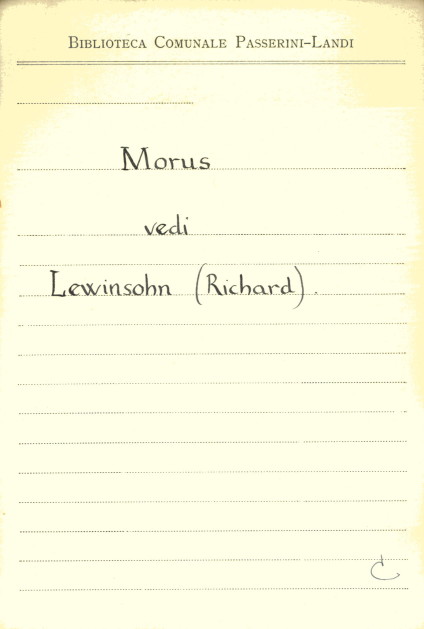 BIBLIOTECA COMUNALE PASSERINI-LANDI
Morus
vedi
Lewinsohn (Richard).
C